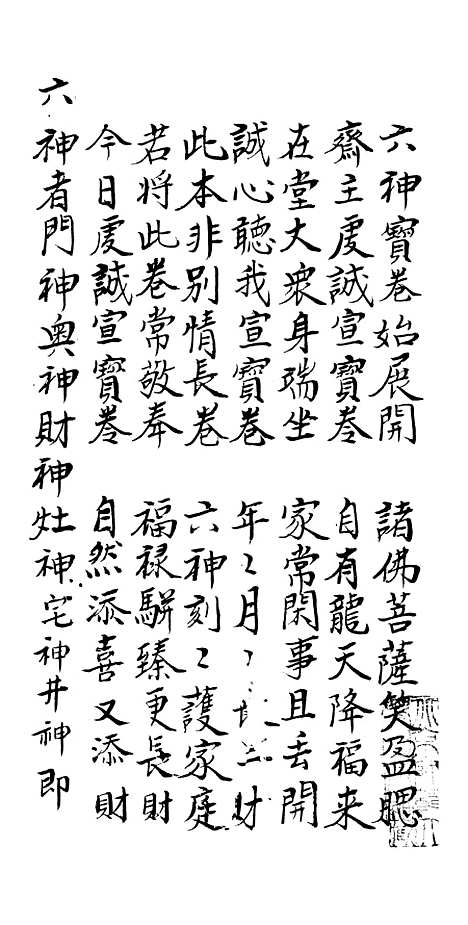 六神寶卷始展開 諸佛菩薩笑盈腮
齋主虔誠宣寶卷 自有龍天降福来
在堂大衆身端坐 家常閑事且丢開
誠心聽我宣寶卷 年〻月〻財
此本非別情長卷 六神刻〻護家庭
若将此卷常敬奉 福禄駢臻更長財
今日虔誠宣寶卷 自然添喜又添財
六神者門神奥神財神灶神宅神井神即